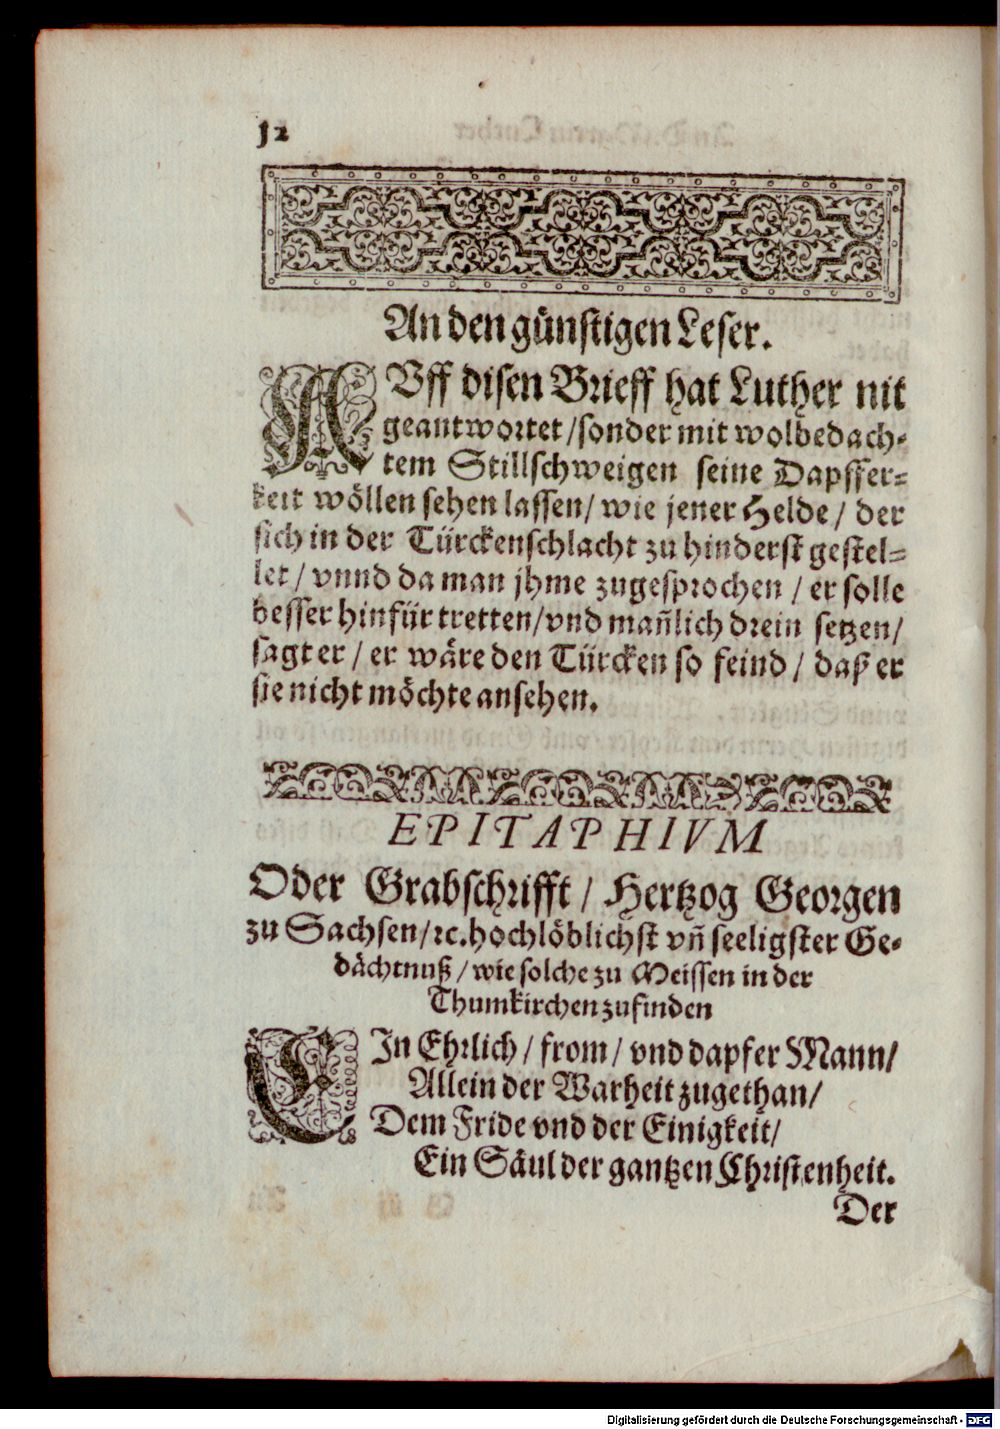 12
An den günstigen Leser.
AVff disen Brieff hat Luther nit
geantwortet / sonder mit wolbedach-
tem Stillschweigen seine Dapffer-
keit wöllen sehen lassen / wie jener Helde / der
sich in der Türckenschlacht zu hinderst gestel-
let / vnnd da man jhme zugesprochen / er solle
besser hinfür tretten / vnd mañlich drein setzen /
sagt er / er wäre den Türcken so feind / daß er
sie nicht möchte ansehen.
EPITAPHIVM
Oder Grabschrifft / Hertzog Georgen
zu Sachsen / ꝛc. hochlöblichst vñ seeligster Ge-
dächtnuß / wie solche zu Meissen in der
Thumkirchen zufinden
EIn Ehrlich / from / vnd dapfer Mann /
Allein der Warheit zugethan /
Dem Fride vnd der Einigkeit /
Ein Säul der gantzen Christenheit.
Der
Digitalisierung gefördert durch die Deutsche Forschungsgemeinschaft - DFG